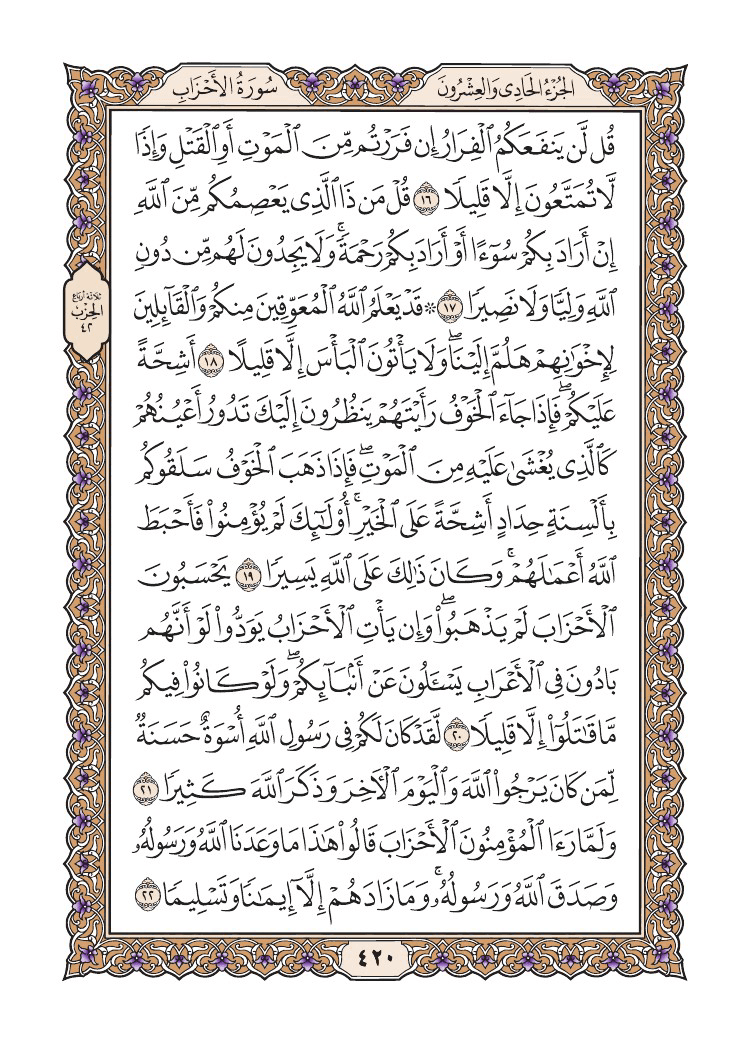 الجُزْءُ الحَادِي وَالعِشْرُونَ
سُورَةُ الأَحْزَابِ
قُل لَّن يَنفَعَكُمُ ٱلْفِرَارُ إِن فَرَرْتُم مِّنَ ٱلْمَوْتِ أَوِ ٱلْقَتْلِ وَإِذًا
لَّا تُمَتَّعُونَ إِلَّا قَلِيلًا ١٦ قُلْ مَن ذَا ٱلَّذِى يَعْصِمُكُم مِّنَ ٱللَّهِ
إِنْ أَرَادَ بِكُمْ سُوٓءًا أَوْ أَرَادَ بِكُمْ رَحْمَةً ۚ وَلَا يَجِدُونَ لَهُم مِّن دُونِ
ٱللَّهِ وَلِيًّا وَلَا نَصِيرًا ١٧ * قَدْ يَعْلَمُ ٱللَّهُ ٱلْمُعَوِّقِينَ مِنكُمْ وَٱلْقَآئِلِينَ
لِإِخْوَٰنِهِمْ هَلُمَّ إِلَيْنَا ۖ وَلَا يَأْتُونَ ٱلْبَأْسَ إِلَّا قَلِيلًا ١٨ أَشِحَّةً
عَلَيْكُمْ ۖ فَإِذَا جَآءَ ٱلْخَوْفُ رَأَيْتَهُمْ يَنظُرُونَ إِلَيْكَ تَدُورُ أَعْيُنُهُمْ
كَٱلَّذِى يُغْشَىٰ عَلَيْهِ مِنَ ٱلْمَوْتِ ۖ فَإِذَا ذَهَبَ ٱلْخَوْفُ سَلَقُوكُم
بِأَلْسِنَةٍ حِدَادٍ أَشِحَّةً عَلَى ٱلْخَيْرِ ۚ أُو۟لَـٰٓئِكَ لَمْ يُؤْمِنُوا۟ فَأَحْبَطَ
ٱللَّهُ أَعْمَـٰلَهُمْ ۚ وَكَانَ ذَٰلِكَ عَلَى ٱللَّهِ يَسِيرًا ١٩ يَحْسَبُونَ
ٱلْأَحْزَابَ لَمْ يَذْهَبُوا۟ ۖ وَإِن يَأْتِ ٱلْأَحْزَابُ يَوَدُّوا۟ لَوْ أَنَّهُم
بَادُونَ فِى ٱلْأَعْرَابِ يَسْـَٔلُونَ عَنْ أَنۢبَآئِكُمْ ۖ وَلَوْ كَانُوا۟ فِيكُم
مَّا قَـٰتَلُوٓا۟ إِلَّا قَلِيلًا ٢٠ لَّقَدْ كَانَ لَكُمْ فِى رَسُولِ ٱللَّهِ أُسْوَةٌ حَسَنَةٌ
لِّمَن كَانَ يَرْجُوا۟ ٱللَّهَ وَٱلْيَوْمَ ٱلْـَٔاخِرَ وَذَكَرَ ٱللَّهَ كَثِيرًا ٢١
وَلَمَّا رَءَا ٱلْمُؤْمِنُونَ ٱلْأَحْزَابَ قَالُوا۟ هَـٰذَا مَا وَعَدَنَا ٱللَّهُ وَرَسُولُهُۥ
وَصَدَقَ ٱللَّهُ وَرَسُولُهُۥ ۚ وَمَا زَادَهُمْ إِلَّآ إِيمَـٰنًا وَتَسْلِيمًا ٢٢
ثلاثة أرباع
الحزب
٤٢
٤٢٠